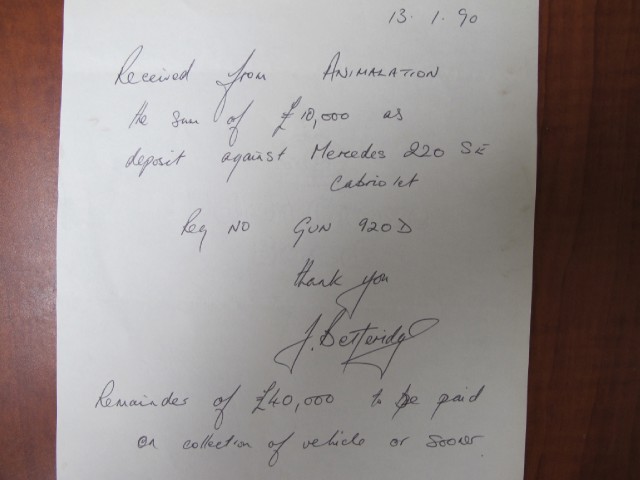 13. 1. 90
Received from ANIMALATION
the sum of £10,000 as
deposit against Mercedes 220 SE
Cabriolet
Reg NO GUN 920D
thank you
J. Betteridge
Remainder of £40,000 to be paid
on collection of vehicle or sooner.